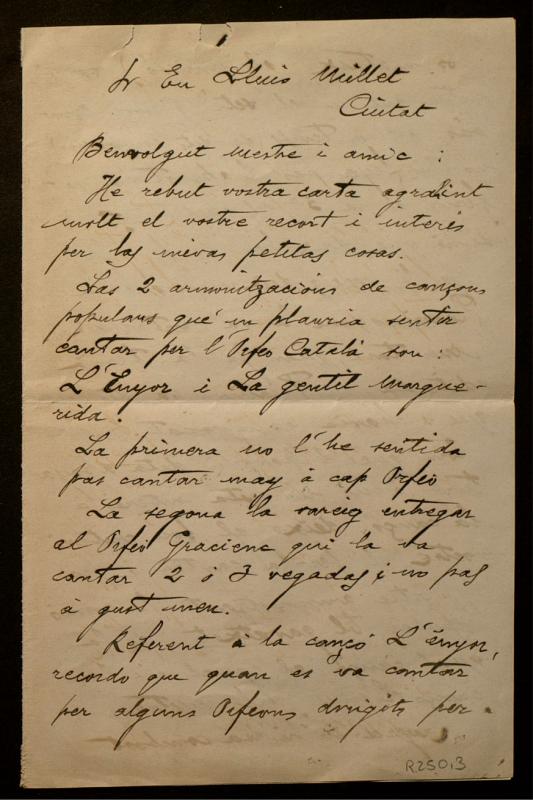 Sr En Lluis Millet
Ciutat
Benvolgut mestre i amic :
He rebut vostra carta agraint
molt el vostre recort i interés
per las mevas petitas cosas.
Las 2 armonitzacions de cançons
populars que'm plauria sentir
cantar per l'Orfeó Catalá son :
L'Enyor i La gentil Margue-
rida.
La primera no l'he sentida
pas cantar may á cap Orfeó
La segona la vareig entregar
al Orfeó Gracienc qui la va
cantar 2 ó 3 vegadas i no pas
á gust meu.
Referent á la cançó L'Enyor,
recordo que quan es va cantar
per alguns Orfeons dirigits per
R250,3